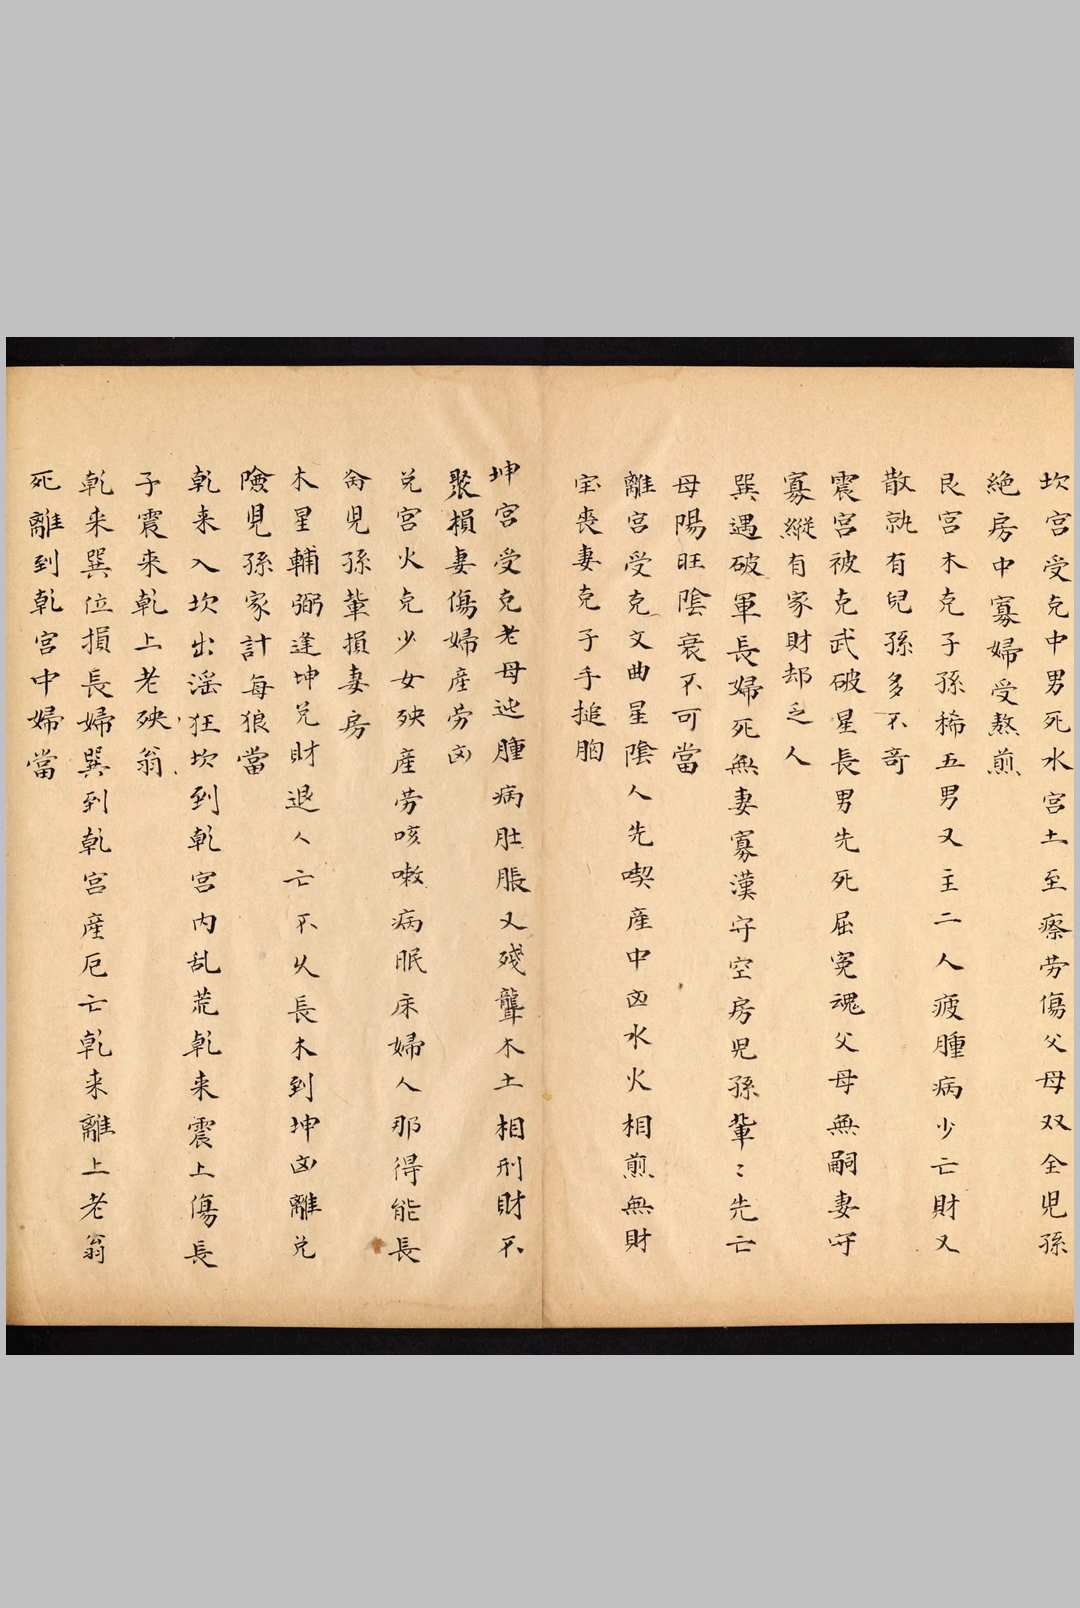 坎宮受克中男死水宮土至瘵劳傷父母双全児孫
絶房中寡婦受熬煎
艮宮木克子孫稀五男又主二人疲腫病少亡財又
散就有兒孫多不竒
震宮被克武破星長男先死屈寃魂父母無嗣妻守
寡縦有家財却乏人
巽遇破軍長婦死無妻寡漢守空房児孫輩〻先亡
母陽旺隂衰不可當
離宮受克文曲星隂人先喫産中凶水火相煎無財
宝喪妻克子手搥胸
坤宮受克老母迯腫病肚脹又殘聾木土相刑財不
聚損妻傷婦産劳凶
兑宮火克少女殃産劳咳嗽病眠床婦人那得能長
命児孫輩損妻房
木星輔弼逢坤兑財退人亡不从長木到坤凶離兑
險児孫家計每狼當
乾来入坎出滛狂坎到乾宮内乱荒乾来震上傷長
子震来乾上老殃翁
乾来巽位損長婦巽到乾宮産厄亡乾来離上老翁
死離到乾宮中婦當